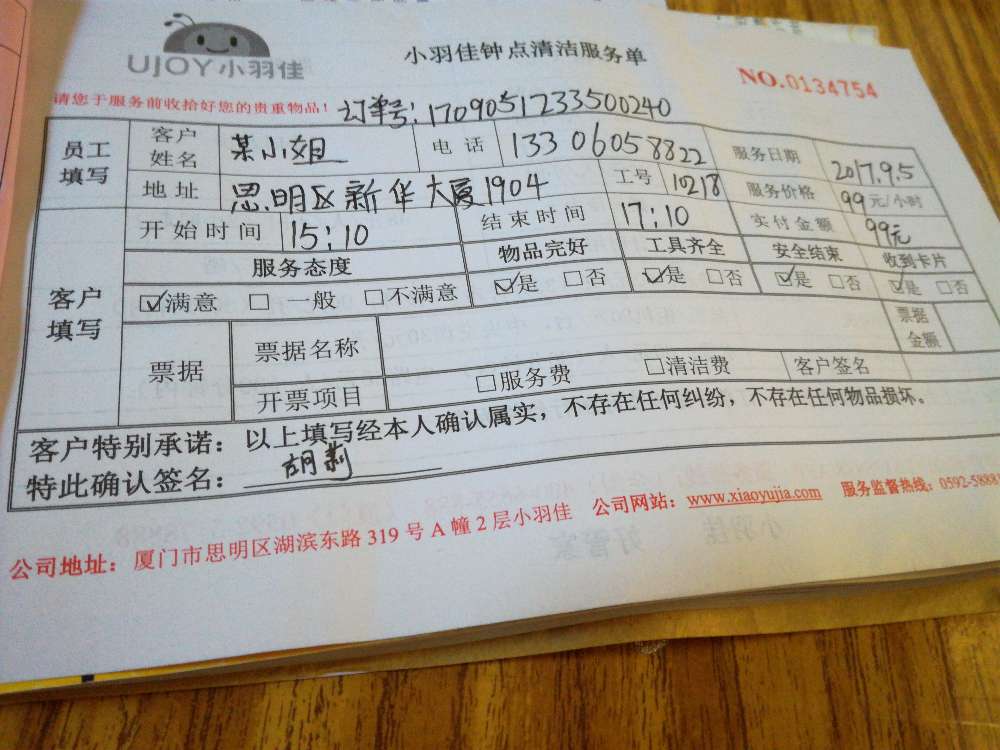 UJOY小羽佳
小羽佳钟点清洁服务单
NO.0134754
请您于服务前收拾好您的贵重物品！
订单号：1709051233500240
员工填写 客户姓名 某小姐 电话 13306058822 服务日期 2017.9.5
地址 思明区新华大厦1904 工号 10218 服务价格 99元/小时
客户填写 开始时间 15:10 结束时间 17:10 实付金额 99元
服务态度 物品完好 工具齐全 安全结束 收到卡片
☑满意 □一般 □不满意 ☑是 □否 ☑是 □否 ☑是 □否 ☑是 □否
票据 票据名称 票据金额
开票项目 □服务费 □清洁费 客户签名
客户特别承诺：以上填写经本人确认属实，不存在任何纠纷，不存在任何物品损坏。
特此确认签名：胡莉
公司地址：厦门市思明区湖滨东路319号A幢2层小羽佳 公司网站：www.xiaoyujia.com 服务监督热线：0592-5888